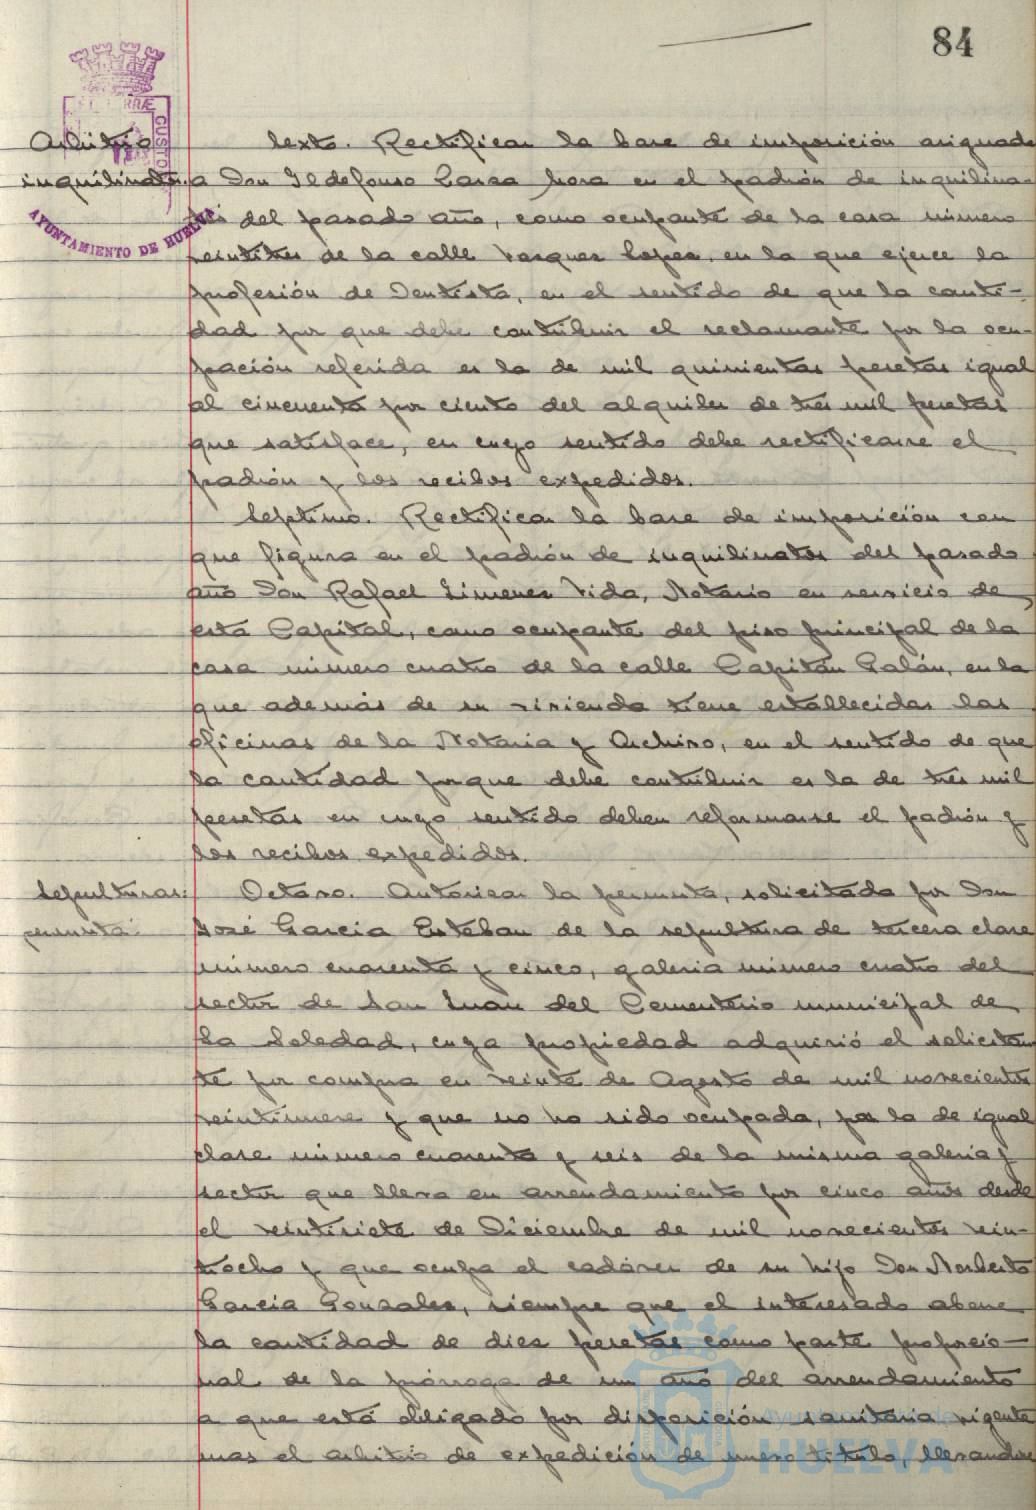 84
PORTUS MARIS ET TERRÆ CUSTODIA
AYUNTAMIENTO DE HUELVA
Arbitrio
inquilinato.
Sexto. Rectificar la base de imposición asignada
a Don Ildefonso Lassa Mora en el padrón de inquilina-
tos del pasado año, como ocupante de la casa número
veintitres de la calle Vazquez Lopez, en la que ejerce la
profesión de Dentista, en el sentido de que la canti-
dad por que debe contribuir el reclamante por la ocu-
pación referida es la de mil quinientas pesetas igual
al cincuenta por ciento del alquiler de tres mil pesetas
que satisface, en cuyo sentido debe rectificarse el
padrón y los recibos expedidos.
Septimo. Rectificar la base de imposición con
que figura en el padrón de inquilinatos del pasado
año Don Rafael Jimenez Vida, Notario en servicio de
esta Capital, como ocupante del piso principal de la
casa número cuatro de la calle Capitán Galán, en la
que además de su vivienda tiene establecidas las
oficinas de la Notaria y Archivo, en el sentido de que
la cantidad porque debe contribuir es la de tres mil
pesetas en cuyo sentido deben reformarse el padrón y
los recibos expedidos.
Sepulturas:
permuta.
Octavo. Autorizar la permuta, solicitada por Don
José Garcia Esteban de la sepultura de tercera clase
número cuarenta y cinco, galeria número cuatro del
sector de San Juan del Cementerio municipal de
La Soledad, cuya propiedad adquirió el solicitan-
te por compra en veinte de Agosto de mil novecientos
veintinueve y que no ha sido ocupada, por la de igual
clase número cuarenta y seis de la misma galeria y
sector que lleva en arrendamiento por cinco años desde
el veintisiete de Diciembre de mil novecientos vein-
tiocho y que ocupa el cadáver de su hijo Don Norberto
Garcia Gonzalez, siempre que el interesado abone
la cantidad de diez pesetas como parte proporcio-
nal de la prórroga de un año del arrendamiento
a que está obligado por disposición sanitaria vigente
mas el arbitrio de expedición de nuevo titulo, llevandose
Ayuntamiento de
HUELVA